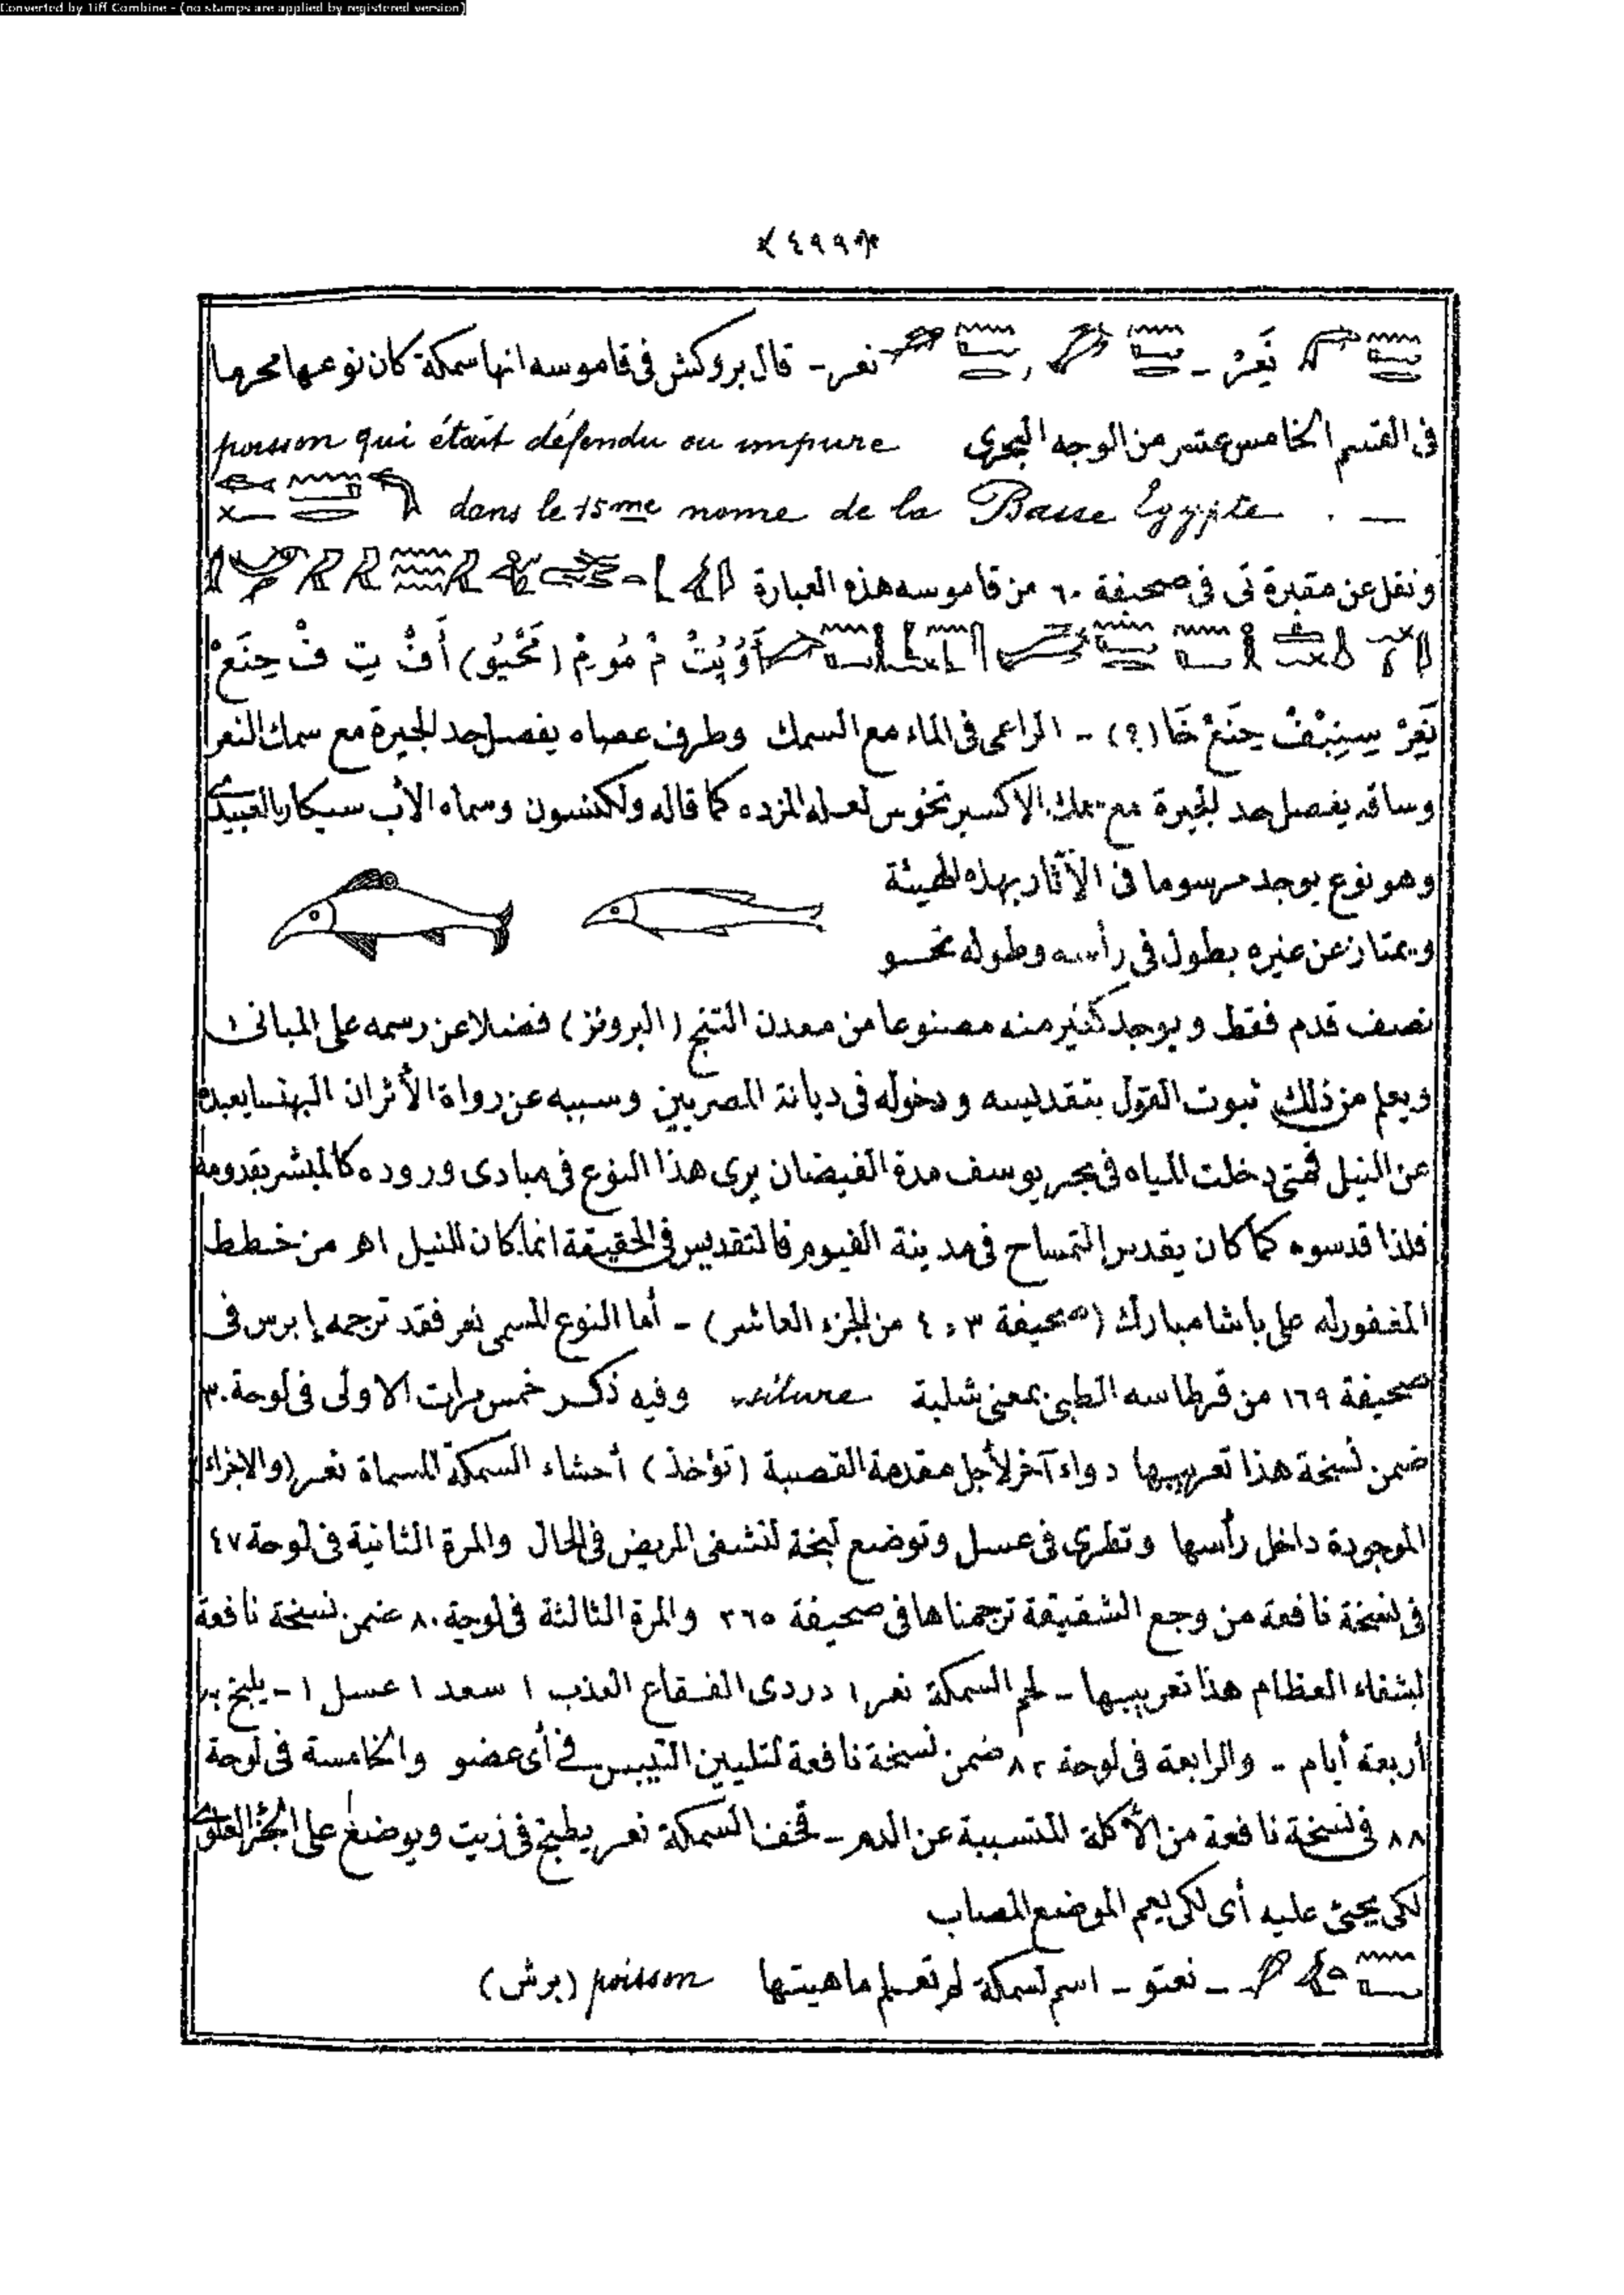 Converted by Tiff Combine - (no stamps are applied by registered version)
٤٩٩
نَعِرْ - , نعر - قال بروكش فى قاموسه انها سمكة كان نوعها محرما
فى القسم الخامس عشر من الوجه البحرى poisson qui était défendu ou impure
dans le 15me nome de la Basse Egypte . —
ونقل عن مقبرة تى فى صحيفة ٦٠ من قاموسه هذه العبارة
مْ مُومْ (مَحْيُو) أَفْ تِ فْ حِنَعْ
نَعِرْ سِنِبْفْ حِنَعْ خَا (؟) - الراعى فى الماء مع السمك وطرف عصاه يفصل حد البحيرة مع سمك النعر
وساقه يفصل حد البحيرة مع سمك الاكسيرنخوس لعله المزده كما قاله ولكنسون وسماه الأب سيكار بالقبيدى
وهو نوع يوجد مرسوما فى الآثار بهذه الهيئة
ويمتاز عن غيره بطول فى رأسه وطوله نحو
نصف قدم فقط ويوجد كثير منه مصنوعا من معدن التنج (البرونز) فضلا عن رسمه على المبانى
ويعلم من ذلك ثبوت القول بتقديسه ودخوله فى ديانة المصريين وسببه عن رواة الأثر ان البهنسا بعيدة
عن النيل فمتى دخلت المياه فى بحر يوسف مدة الفيضان يرى هذا النوع فى مبادى وروده كالمبشر بقدومه
فلذا قدسوه كما كان يقدس التمساح فى مدينة الفيوم فالتقديس فى الحقيقة انما كان للنيل اهـ من خطط
المغفور له على باشا مبارك (صحيفة ٣ و ٤ من الجزء العاشر) - أما النوع المسمى نعر فقد ترجمه إبرس فى
صحيفة ١٦٩ من قرطاسه الطبى بمعنى شلبة silure وفيه ذكر خمس مرات الاولى فى لوحة ٣٠
ضمن نسخة هذا تعريبها دواء آخر لأجل مقدمة القصبة (تؤخذ) أحشاء السمكة المسماة نعر (والاجزاء
الموجودة داخل رأسها وتطرى فى عسل وتوضع لبخة لتشفى المريض فى الحال والمرة الثانية فى لوحة ٤٧
فى نسخة نافعة من وجع الشقيقة ترجمناها فى صحيفة ٣٦٥ والمرة الثالثة فى لوحة ٨٠ ضمن نسخة نافعة
لشفاء العظام هذا تعريبها - لحم السمكة نعر ١ دردى الفقاع العذب ١ سعد ١ عسل ١ - يلبخ به
أربعة أيام - والرابعة فى لوحة ٨٢ ضمن نسخة نافعة لتليين التيبس فى أى عضو والخامسة فى لوحة
٨٨ فى نسخة نافعة من الأكلة المتسببة عن الدم - قحف السمكة نعر يطبخ فى زيت ويوضع على الجزء العلوى
لكى يحيى عليه أى لكى يعم الموضع المصاب
- نعتو - اسم لسمكة لم تعلم ماهيتها poisson (برش)